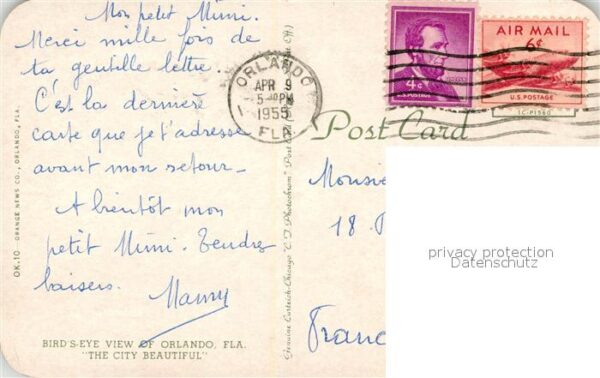 Mon petit Mimi.
Merci mille fois de
ta gentille lettre.
C'est la dernière
carte que je t'adresse
avant mon retour –
A bientôt mon
petit Mimi. Tendres
baisers.
BIRD'S-EYE VIEW OF ORLANDO, FLA.
"THE CITY BEAUTIFUL"
OK.10 — ORANGE NEWS CO., ORLANDO, FLA.
ORLANDO
APR 9
5-PM
1955
FLA.
4¢
U.S. POSTAGE
AIR MAIL
6¢
U.S. POSTAGE
Post Card
1C-P1560
Genuine Curteich-Chicago "C.T. Photochrom" Post Card
Monsie
18
Franc
privacy protection
Datenschutz